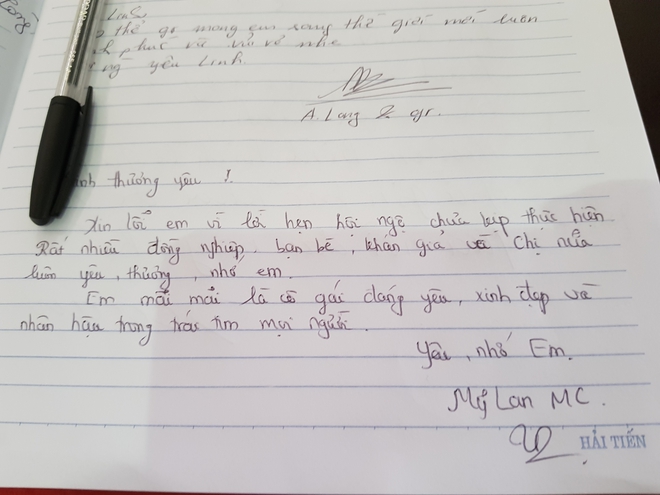 Linh
thể gọi mong em sang thế giới mới luôn
phúc và vui vẻ nhé
yêu Linh
A. Long & gr.
thương yêu !
Xin lỗi em vì lời hẹn hội ngộ chưa kịp thực hiện
Rất nhiều đồng nghiệp, bạn bè, khán giả và Chị nữa
luôn yêu, thương, nhớ em.
Em mãi mãi là cô gái đáng yêu, xinh đẹp và
nhân hậu trong trái tim mọi người.
Yêu, nhớ Em.
Mỹ Lan MC.
HẢI TIẾN